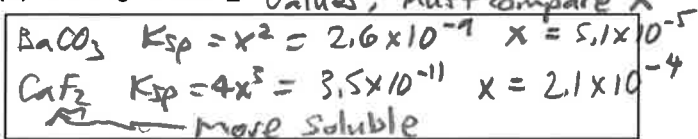 values, must compare x
BaCO₃ Ksp = x² = 2.6 x 10⁻⁹ x = 5.1 x 10⁻⁵
CaF₂ Ksp = 4x³ = 3.5 x 10⁻¹¹ x = 2.1 x 10⁻⁴
more soluble